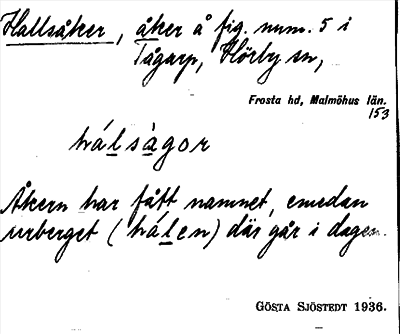 Hallsåker, åker å fig. num. 5 i
Tågarp, Hörby sn,
Frosta hd, Malmöhus län.
153
hálsàgor
Åkern har fått namnet, emedan
urberget (hálen) där går i dagen.
GÖSTA SJÖSTEDT 1936.